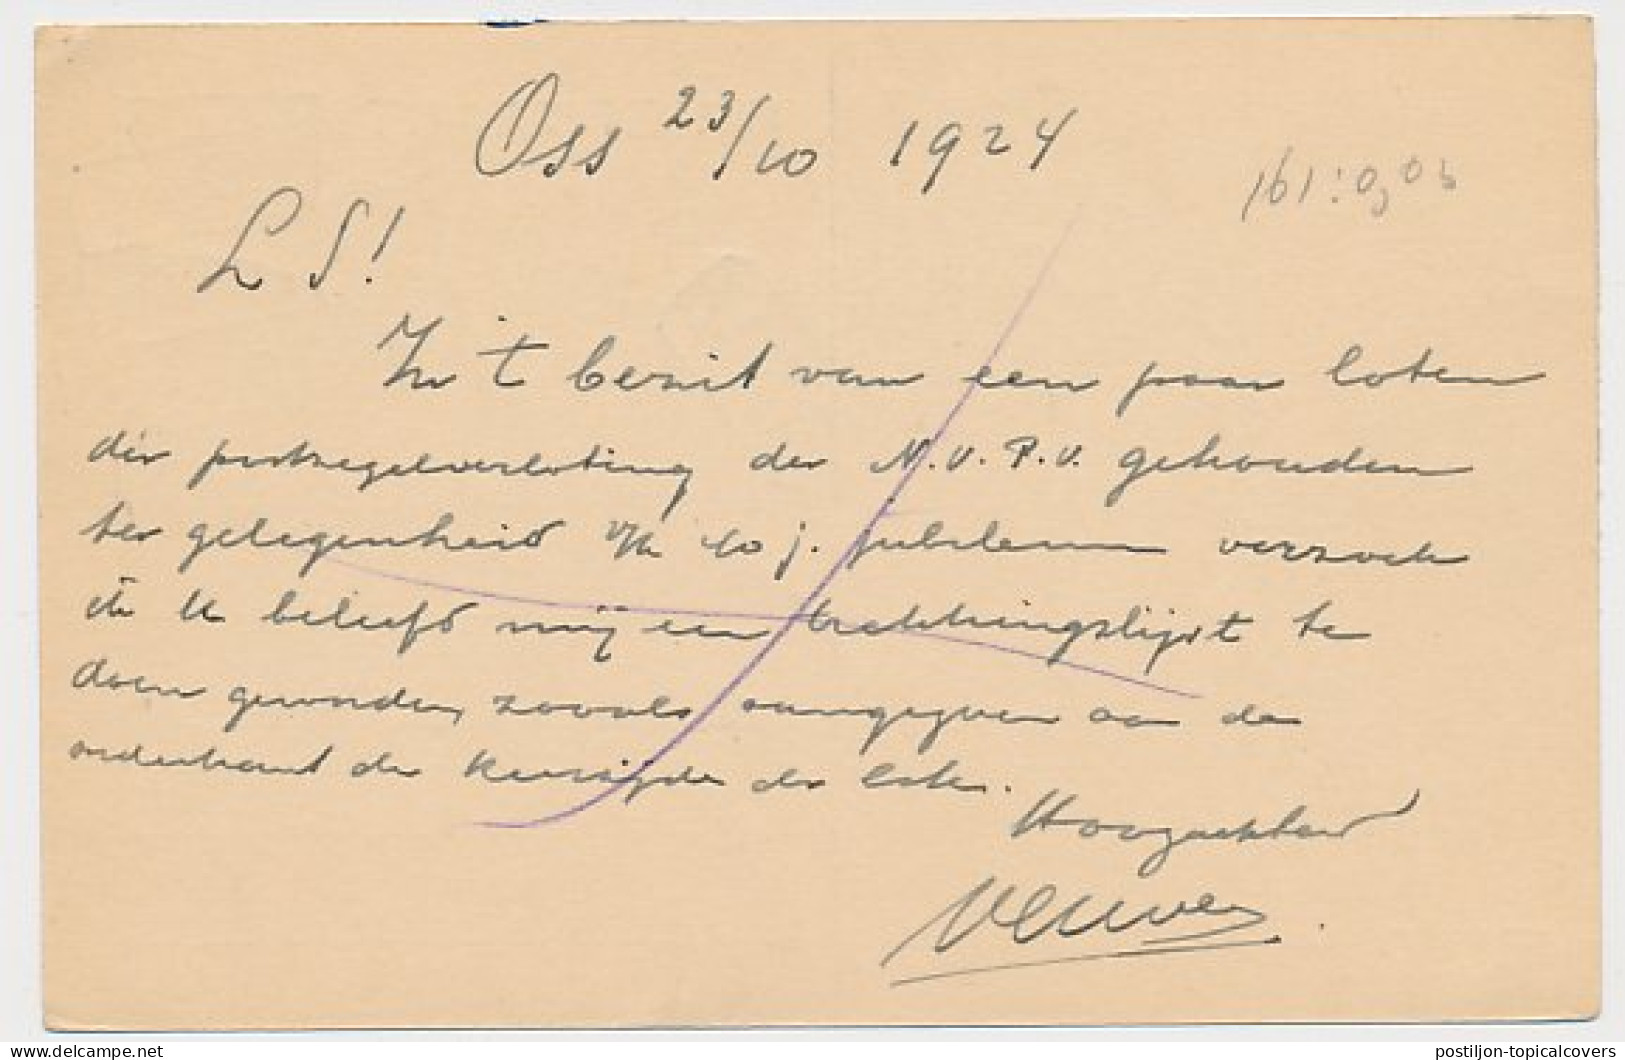 Oss 23/10 1924
161:0,03
L S!
In 't bezit van een paar loten
der postzegelverloting der N.V.P.V. gehouden
ter gelegenheid v/h 40 j. jubileum verzoek
ik U beleefd mij een trekkingslijst te
doen geworden, zooals aangegeven aan de
onderkant der keerzijde der loten.
Hoogachtend
postiljon-topicalcovers
delcampe.net